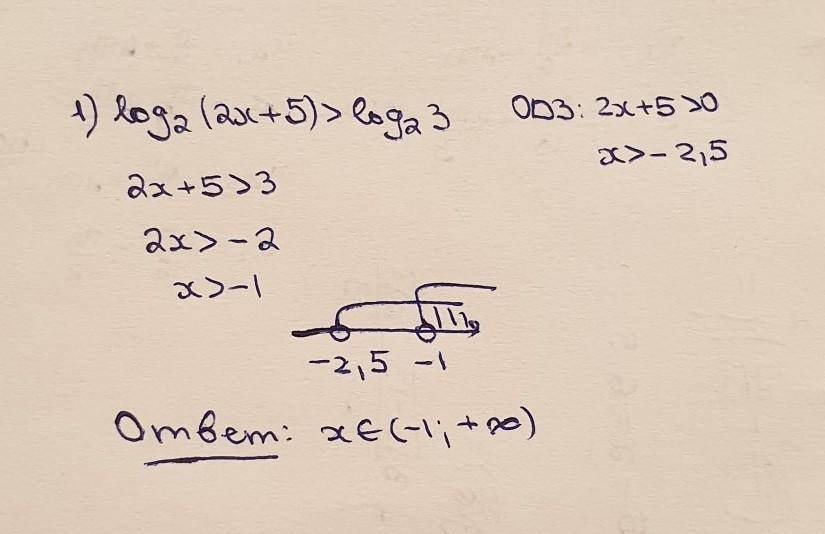 1) log₂(2x+5)>log₂3 ОДЗ: 2x+5>0
x>-2,5
2x+5>3
2x>-2
x>-1
-2,5 -1
Ответ: x∈(-1;+∞)